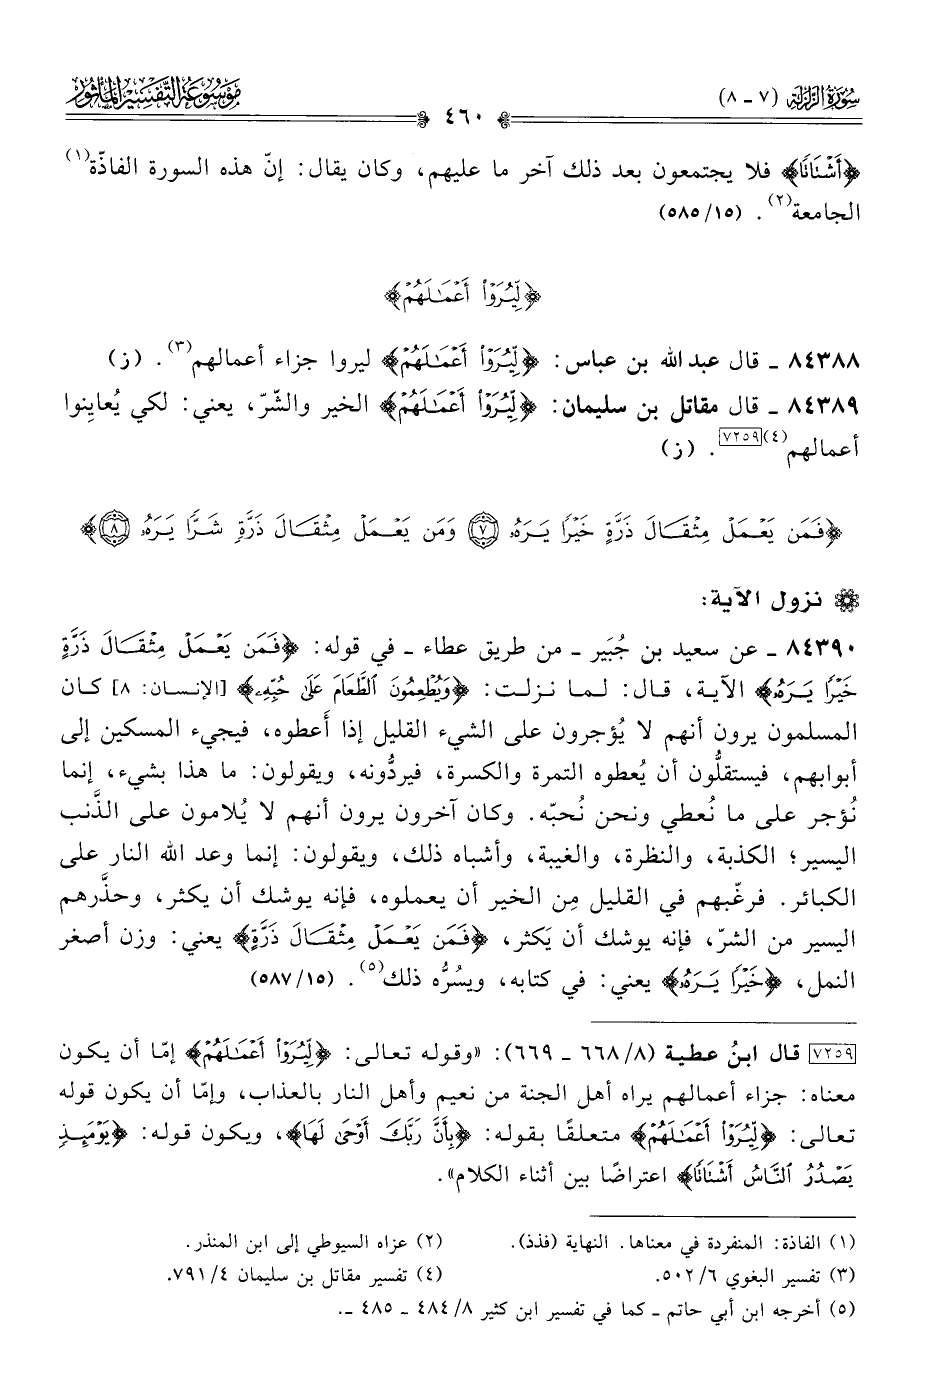 سُورَةُ الزَّلْزَلَةِ (٧ - ٨)
٤٦٠
مَوْسُوعَةُ التَّفْسِيرِ المَأْثُور
﴿أَشْتَاتًا﴾ فلا يجتمعون بعد ذلك آخر ما عليهم، وكان يقال: إنّ هذه السورة الفاذّة(١)
الجامعة(٢). (٥٨٥/١٥)
﴿لِّيُرَوْا۟ أَعْمَـٰلَهُمْ﴾
٨٤٣٨٨ - قال عبد الله بن عباس: ﴿لِّيُرَوْا۟ أَعْمَـٰلَهُمْ﴾ ليروا جزاء أعمالهم(٣). (ز)
٨٤٣٨٩ - قال مقاتل بن سليمان: ﴿لِّيُرَوْا۟ أَعْمَـٰلَهُمْ﴾ الخير والشّر، يعني: لكي يُعاينوا
أعمالهم(٤)[٧٢٥٩]. (ز)
﴿فَمَن يَعْمَلْ مِثْقَالَ ذَرَّةٍ خَيْرًا يَرَهُۥ ٧ وَمَن يَعْمَلْ مِثْقَالَ ذَرَّةٍ شَرًّا يَرَهُۥ ٨﴾
نزول الآية:
٨٤٣٩٠ - عن سعيد بن جُبَير - من طريق عطاء - في قوله: ﴿فَمَن يَعْمَلْ مِثْقَالَ ذَرَّةٍ
خَيْرًا يَرَهُۥ﴾ الآية، قال: لما نزلت: ﴿وَيُطْعِمُونَ ٱلطَّعَامَ عَلَىٰ حُبِّهِۦ﴾ [الإنسان: ٨] كان
المسلمون يرون أنهم لا يُؤجرون على الشيء القليل إذا أَعطوه، فيجيء المسكين إلى
أبوابهم، فيستقلُّون أن يُعطوه التمرة والكسرة، فيردُّونه، ويقولون: ما هذا بشيء، إنما
نُؤجر على ما نُعطي ونحن نُحبّه. وكان آخرون يرون أنهم لا يُلامون على الذَّنب
اليسير؛ الكذبة، والنظرة، والغيبة، وأشباه ذلك، ويقولون: إنما وعد الله النار على
الكبائر. فرغّبهم في القليل مِن الخير أن يعملوه، فإنه يوشك أن يكثر، وحذَّرهم
اليسير من الشرّ، فإنه يوشك أن يَكثر، ﴿فَمَن يَعْمَلْ مِثْقَالَ ذَرَّةٍ﴾ يعني: وزن أصغر
النمل، ﴿خَيْرًا يَرَهُۥ﴾ يعني: في كتابه، ويسُرُّه ذلك(٥). (٥٨٧/١٥)
[٧٢٥٩] قال ابنُ عطية (٦٦٨/٨ - ٦٦٩): «وقوله تعالى: ﴿لِّيُرَوْا۟ أَعْمَـٰلَهُمْ﴾ إمّا أن يكون
معناه: جزاء أعمالهم يراه أهل الجنة من نعيم وأهل النار بالعذاب، وإمّا أن يكون قوله
تعالى: ﴿لِّيُرَوْا۟ أَعْمَـٰلَهُمْ﴾ متعلقًا بقوله: ﴿بِأَنَّ رَبَّكَ أَوْحَىٰ لَهَا﴾، ويكون قوله: ﴿يَوْمَئِذٍ
يَصْدُرُ ٱلنَّاسُ أَشْتَاتًا﴾ اعتراضًا بين أثناء الكلام».
(١) الفاذة: المنفردة في معناها. النهاية (فذذ). (٢) عزاه السيوطي إلى ابن المنذر.
(٣) تفسير البغوي ٥٠٢/٦. (٤) تفسير مقاتل بن سليمان ٧٩١/٤.
(٥) أخرجه ابن أبي حاتم - كما في تفسير ابن كثير ٤٨٤/٨ - ٤٨٥ -.